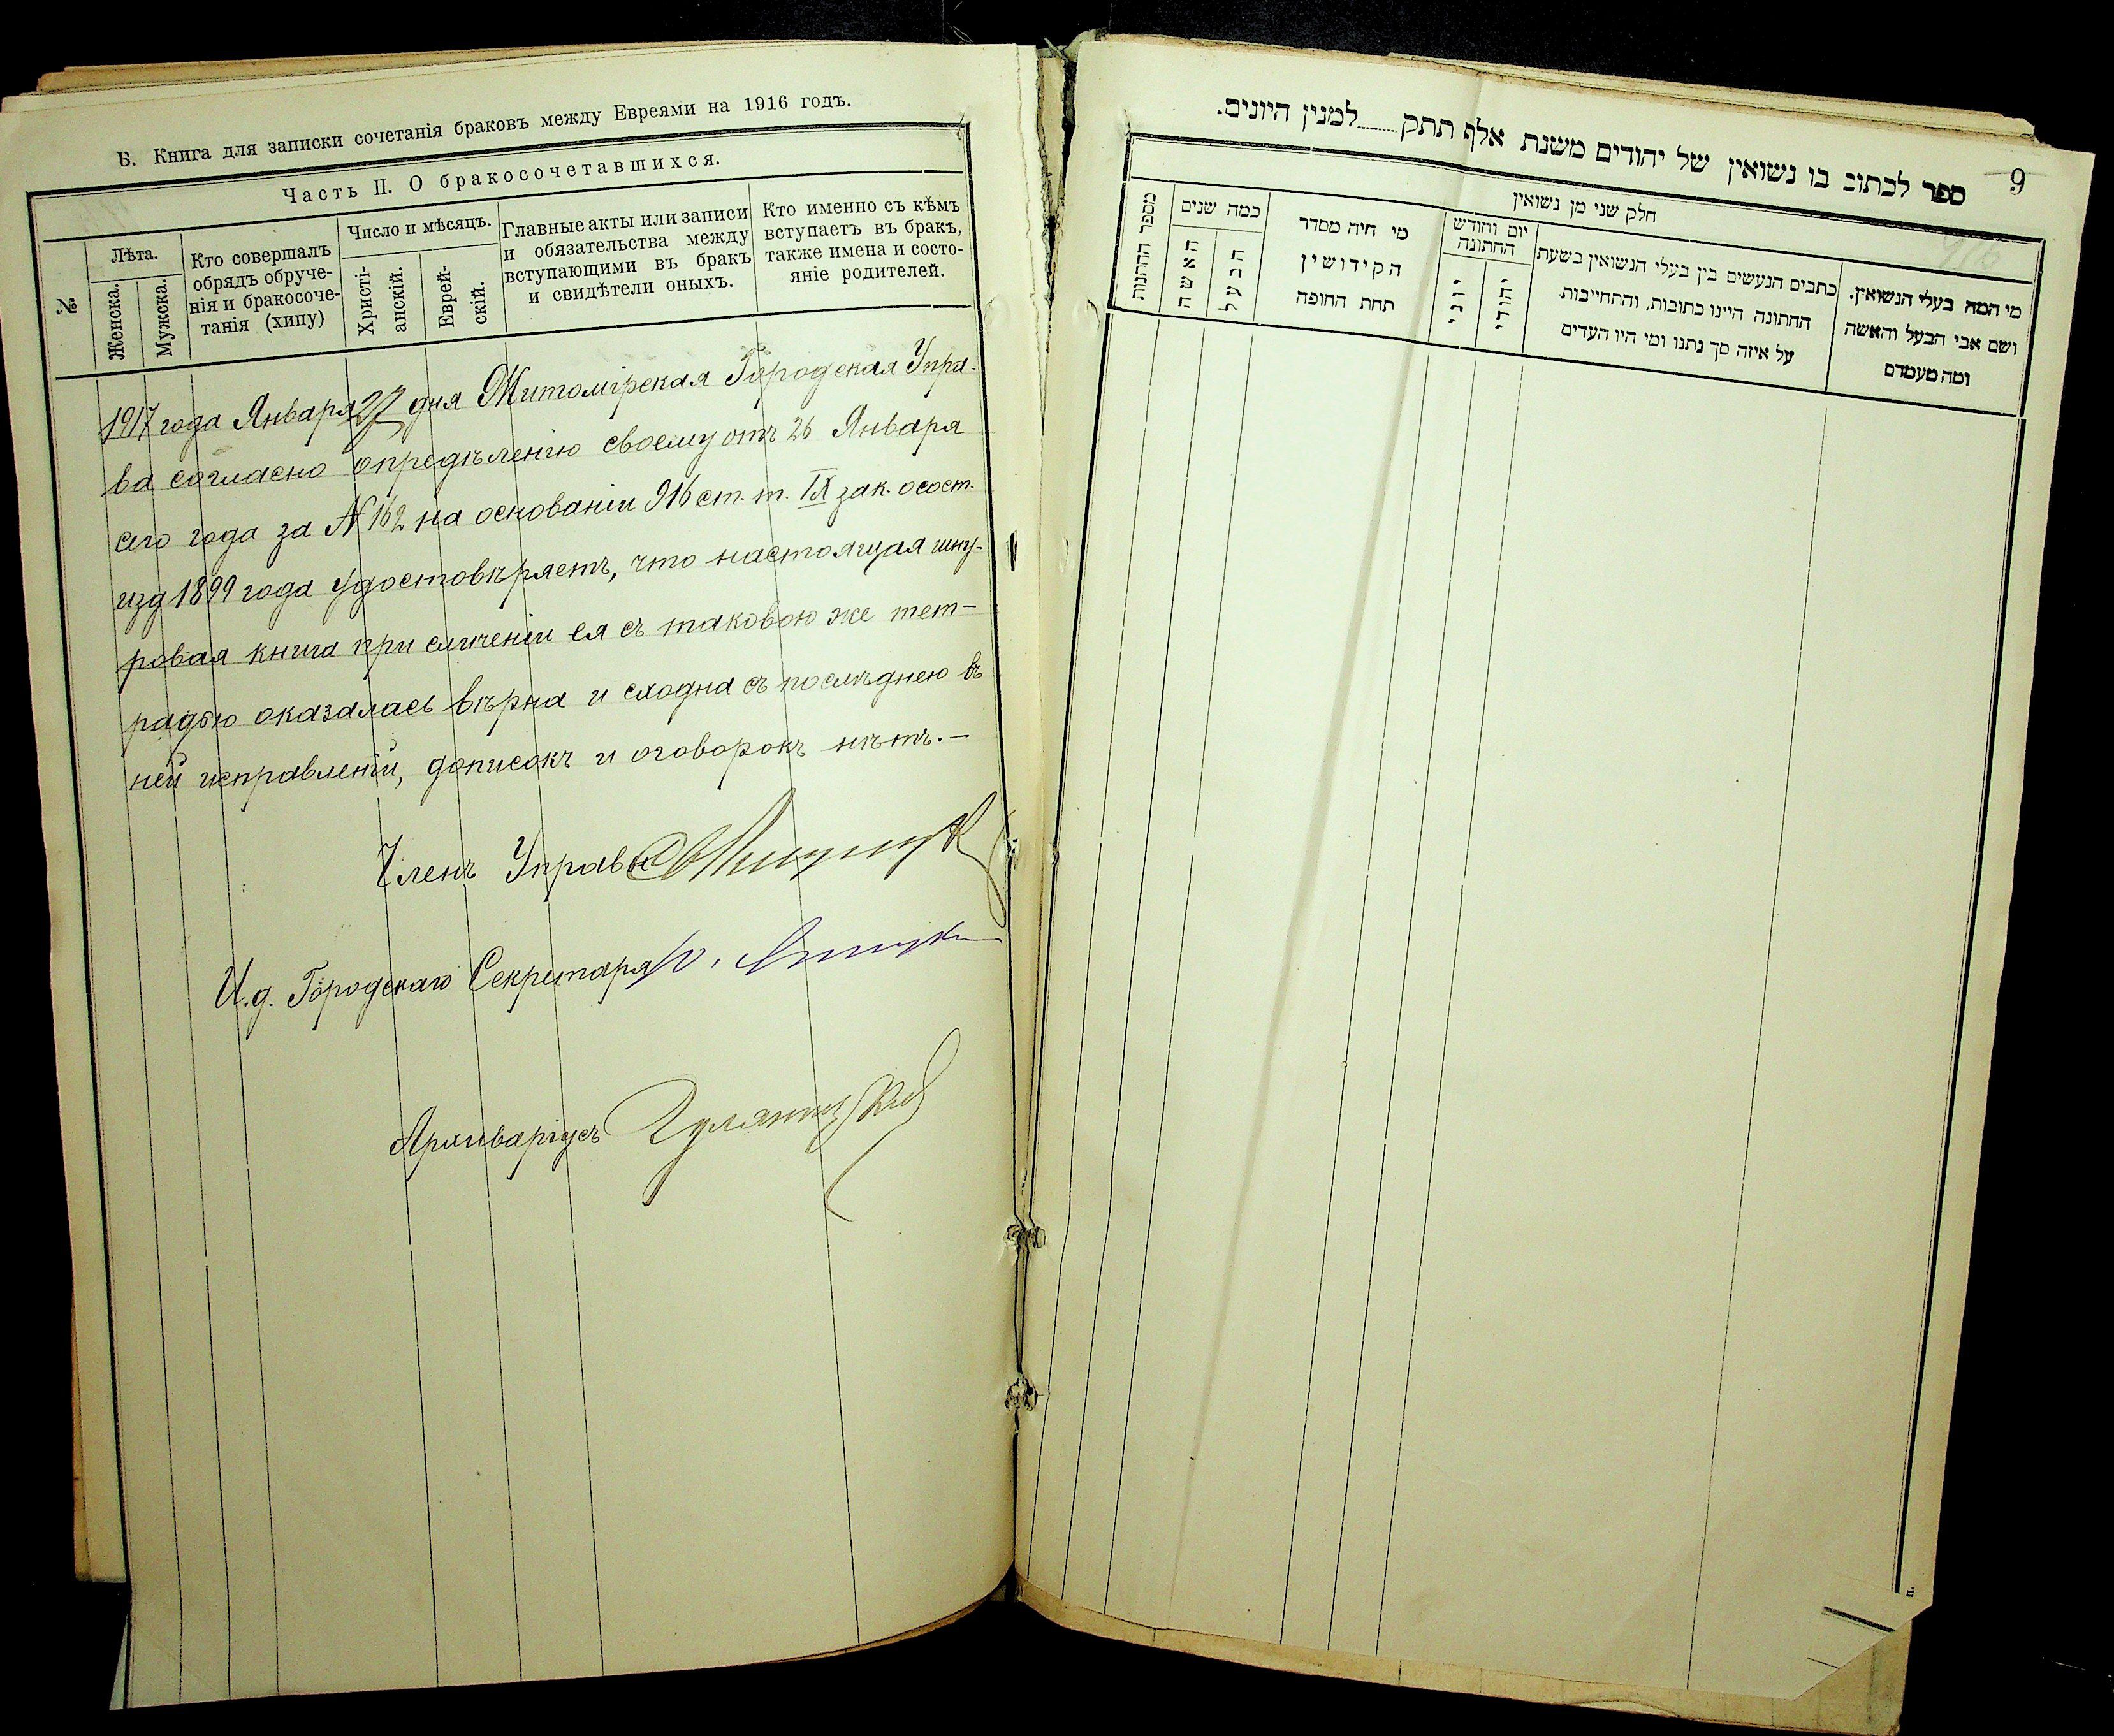 Б. Книга для записки сочетанія браковъ между Евреями на 1916 годъ.
Часть II. О бракосочетавшихся.
№
Лѣта.
Женска.
Мужска.
Кто совершалъ
обрядъ обруче-
нія и бракосоче-
танія (хипу)
Число и мѣсяцъ.
Христі-
анскій.
Еврей-
скій.
Главные акты или записи
и обязательства между
вступающими въ бракъ
и свидѣтели оныхъ.
Кто именно съ кѣмъ
вступаетъ въ бракъ,
также имена и состо-
яніе родителей.
1917 года Января 27 дня Житомірская Городская Упра-
ва согласно опредѣленію своему отъ 26 Января
сего года за № 162 на основаніи 916 ст. т. IX зак. о сост.
изд 1899 года удостовѣряетъ, что настоящая шну-
ровая книга при сличеніи ея съ таковою же тет-
радью оказалась вѣрна и сходна съ послѣднею въ
ней исправленій, дописокъ и оговорокъ нѣтъ.—
Членъ Управы
И.д. Городскаго Секретаря
Архиваріусъ
9
916
ספר לכתוב בו נשואין של יהודים משנת אלף תתק למנין היונים.
חלק שני מן נשואין
מספר החתונות
כמה שנים
האשה
הבעל
מי היה מסדר
הקידושין
תחת החופה
יום וחודש
החתונה
יוני
יהודי
כתבים הנעשים בין בעלי הנשואין בשעת
החתונה היינו כתובות, והתחייבות
על איזה סך נתנו ומי היו העדים
מי המה בעלי הנשואין.
ושם אבי הבעל והאשה
ומה מעמדם